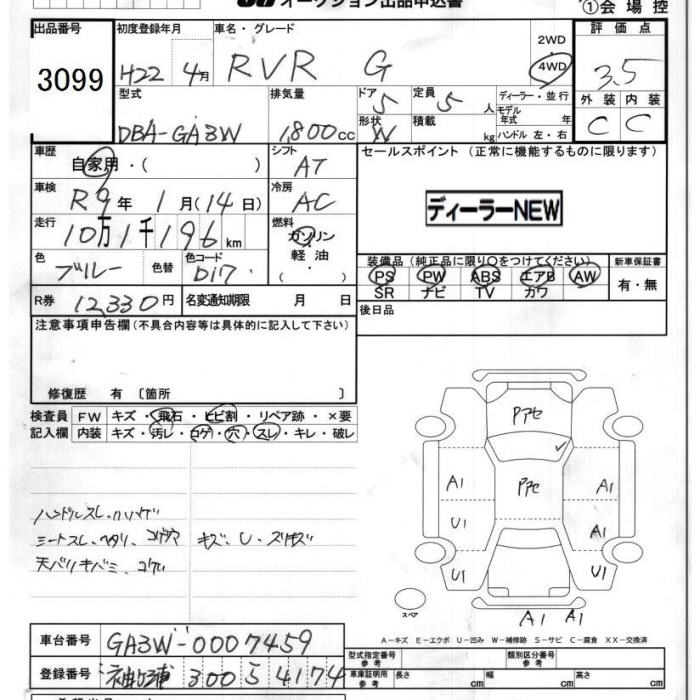 オークション出品申込書
①会場控
出品番号 初度登録年月 車名・グレード 評価点
3099 H22 4月 RVR G 2WD 4WD 3.5
型式 排気量 ドア 5 定員 5人 ディーラー・並行 外装 内装
DBA-GA3W 1,800cc 形状 W 積載 kg モデル年式 年 ハンドル 左・右 C C
車歴 自家用・( ) シフト AT セールスポイント (正常に機能するものに限ります)
車検 R9年 1月(14日) 冷房 AC ディーラーNEW
走行 10万1千196km 燃料 ガソリン・軽油・( )
色 ブルー 色替 色コード D17 装備品(純正品に限り○をつけてください) 新車保証書
PS PW ABS エアB AW 有・無
SR ナビ TV カワ
R券 12,330円 名変通知期限 月 日 後日品
注意事項申告欄(不具合内容等は具体的に記入して下さい)
修復歴 有〔箇所 〕
検査員記入欄 FW キズ・飛石・ヒビ割・リペア跡・×要
内装 キズ・汚レ・コゲ・穴・スレ・キレ・破レ
Pアセ
Pアセ
A1 A1
U1 A1
U1 U1
スペア A1 A1
ハンドルスレ、ハリハゲ
シートスレ、ヘタリ、コゲ穴 キズ、U・スリキズ
天バリキバミ、コゲ
A-キズ E-エクボ U-凹み W-補修跡 S-サビ C-腐食 XX-交換済
車台番号 GA3W-0007459 型式指定番号 参考 類別区分番号 参考
登録番号 袖ヶ浦 300 5 4174 車庫証明用 参考 長さ cm 幅 cm 高さ cm